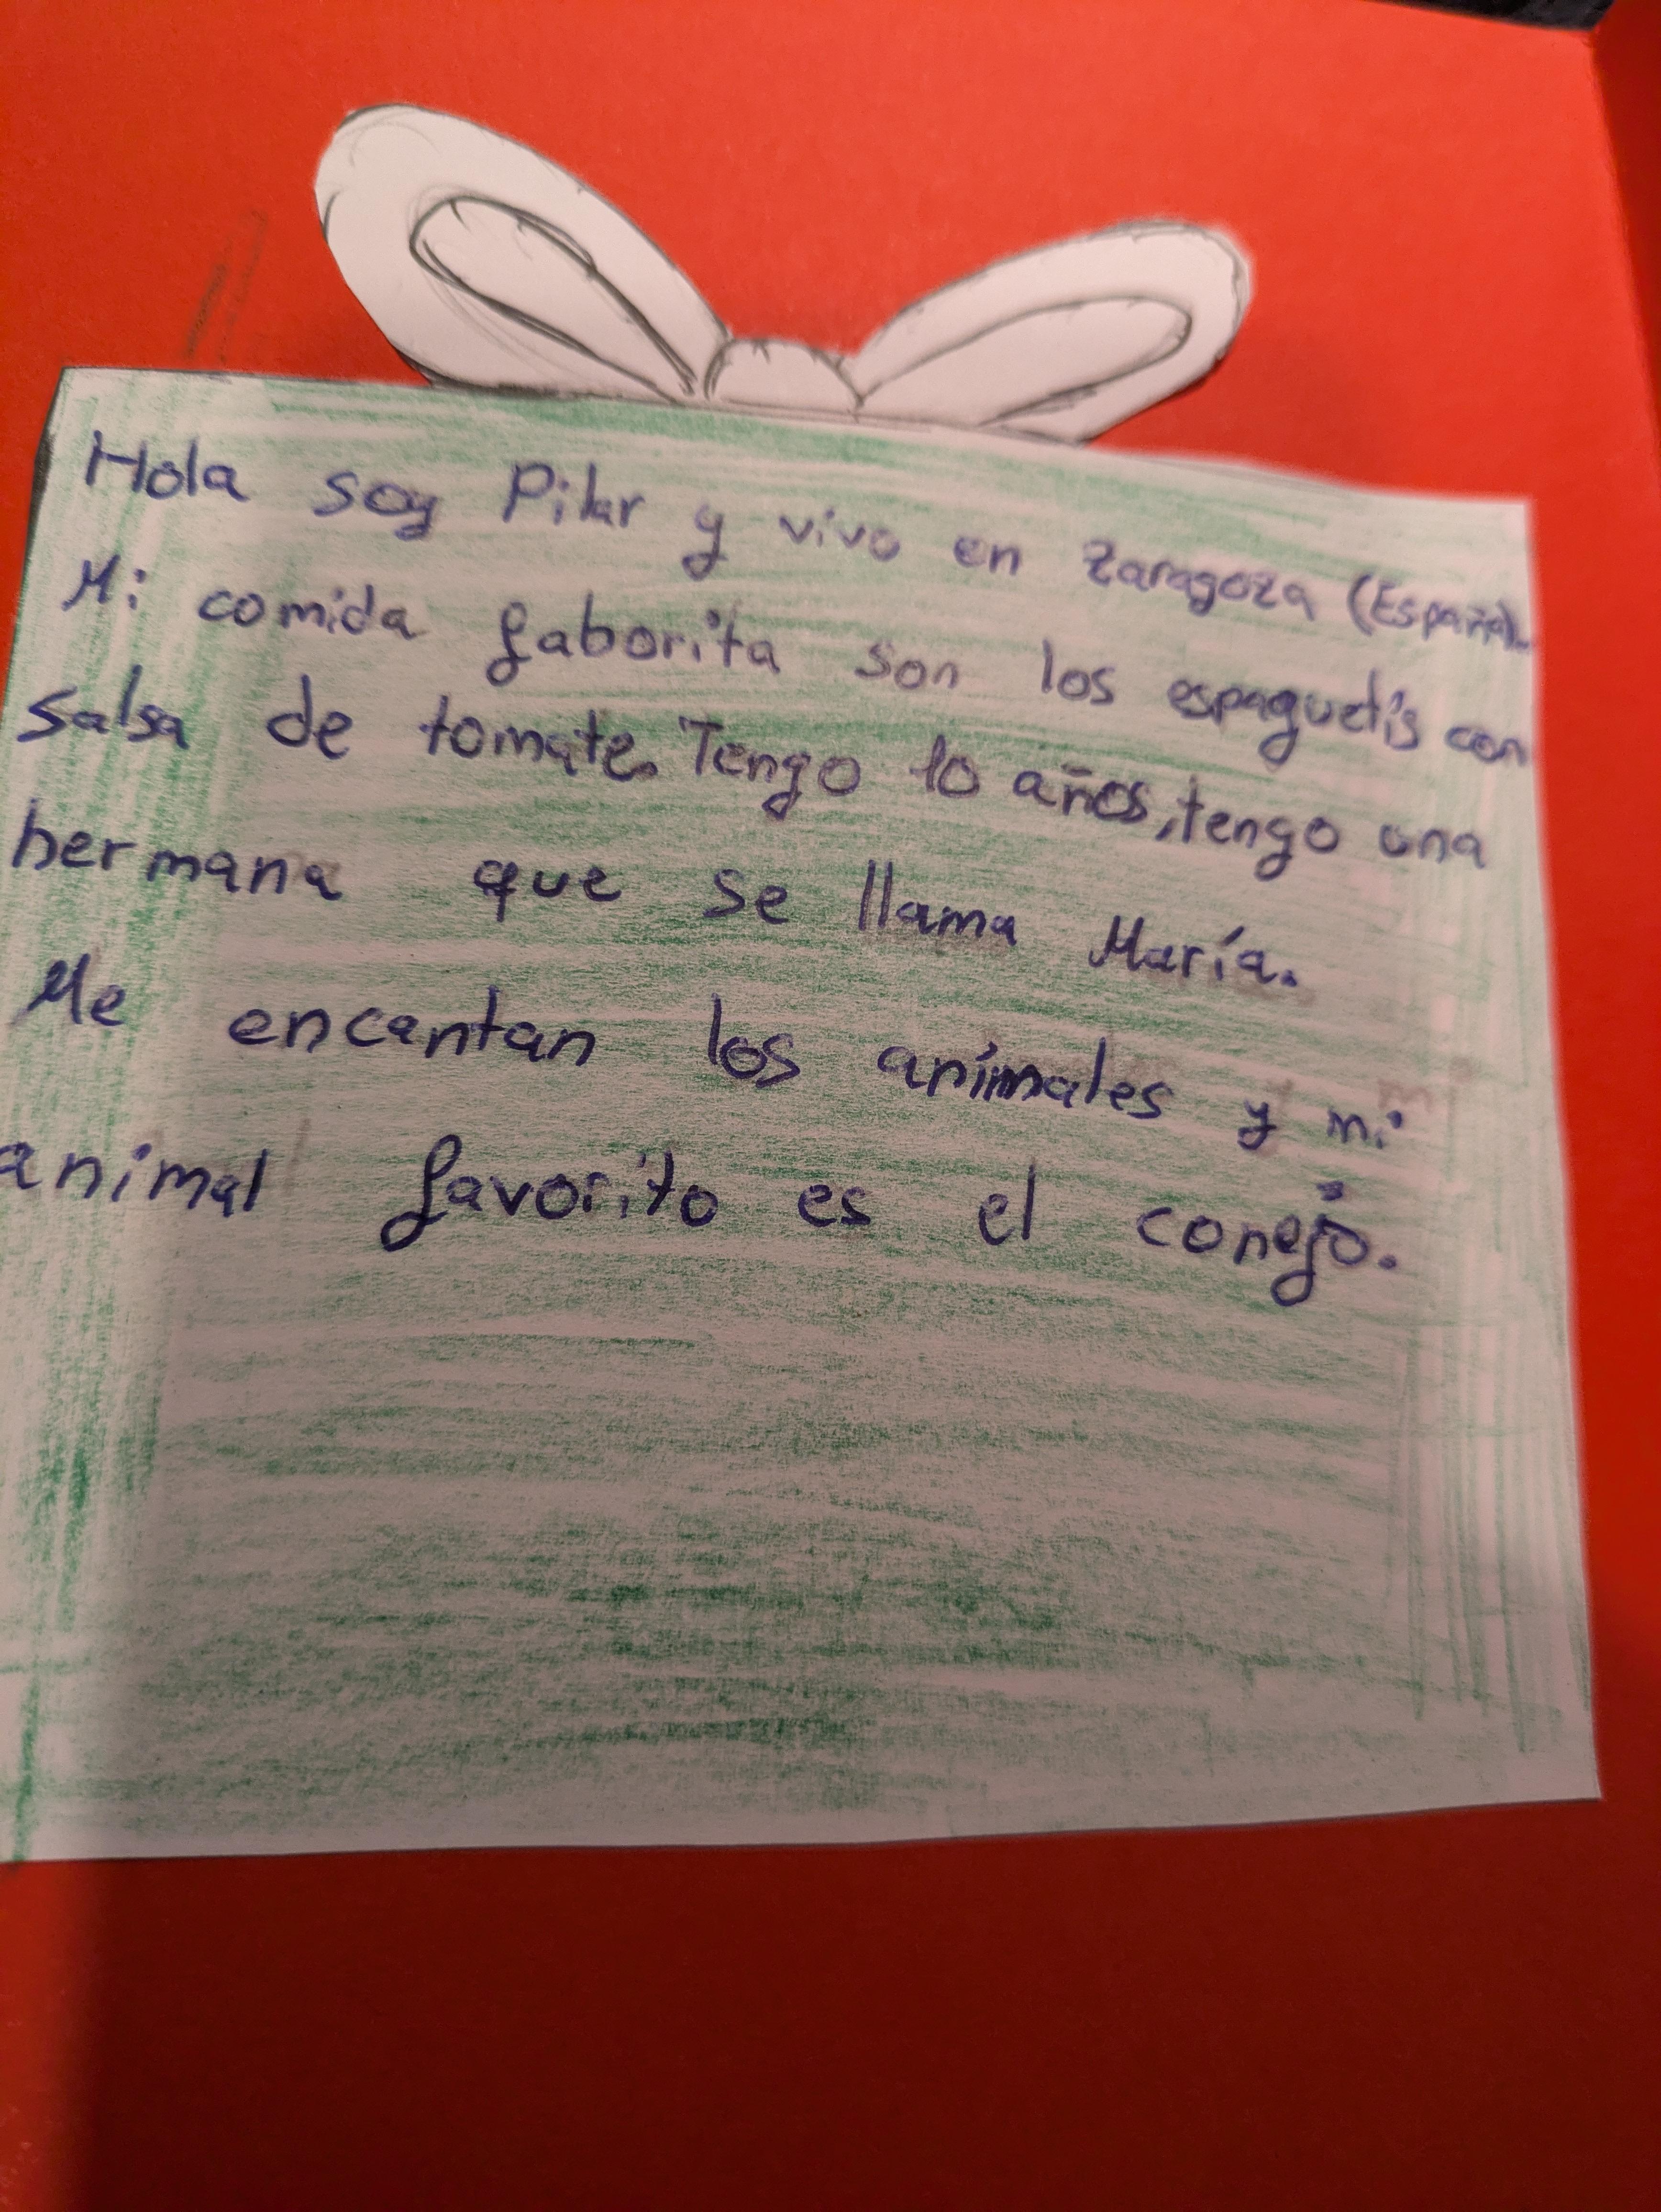 Hola soy Pilar y vivo en Zaragoza (España).
Mi comida faborita son los espaguetis con
salsa de tomate. Tengo 10 años, tengo una
hermana que se llama María.
Me encantan los animales y mi
animal favorito es el conejo.